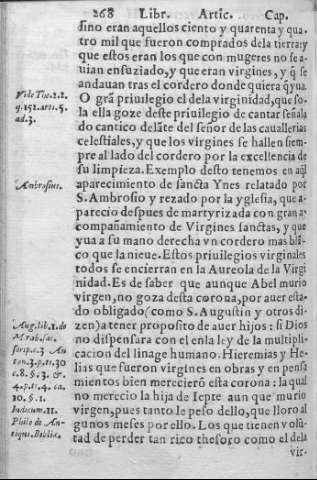 268 Libr. Artic. Cap.
sino eran aquellos ciento y quarenta y qua.
tro mil que fueron comprados dela tierra: y
que estos eran los que con mugeres no se a
uian ensuziado, y que eran virgines, y q̃ se
andauan tras el cordero donde quiera q̃ yua.
Vide Tho. 2.2.
q. 152. arti. 5.
ad. 3.
O grã priuilegio el dela virginidad, que so.
la ella goze deste priuilegio de cantar señala
do cantico delãte del señor de las cauallerias
celestiales, y que los virgines se hallen siem-
pre al lado del cordero por la excellencia de
su limpieza. Exemplo desto tenemos en aq̃l
Ambrosius.
aparecimiento de sancta Ynes relatado por
S. Ambrosio y rezado por la yglesia, que a-
parecio despues de martyrizada con gran a-
compañamiento de Virgines sanctas, y que
yua a su mano derecha vn cordero mas blã-
co que la nieue. Estos priuilegios virginales
todos se encierran en la Aureola de la Virgi
nidad. Es de saber que aunque Abel murio
virgen, no goza desta corona, por auer esta-
do obligado (como S. Augustin y otros di-
Aug. lib. 1. de
zen) a tener proposito de auer hijos: si Dios
no dispensara con el en la ley de la multipli-
cacion del linage humano. Hieremias y He-
ton. 3. p. ti. 30
c. 8. §. 3. &
4. p. ti. 4. ca.
10. §. 1.
lias que fueron virgines en obras y en pensa
mientos bien merecierõ esta corona: la qual
no merecio la hija de Iepte aun que murio
Iudicum. 11.
Philo de An-
tiqui. Biblic.
virgen, pues tanto le peso dello, que lloro al
gunos meses por ello. Los que tienen volũ-
tad de perder tan rico thesoro como el dela
vir-